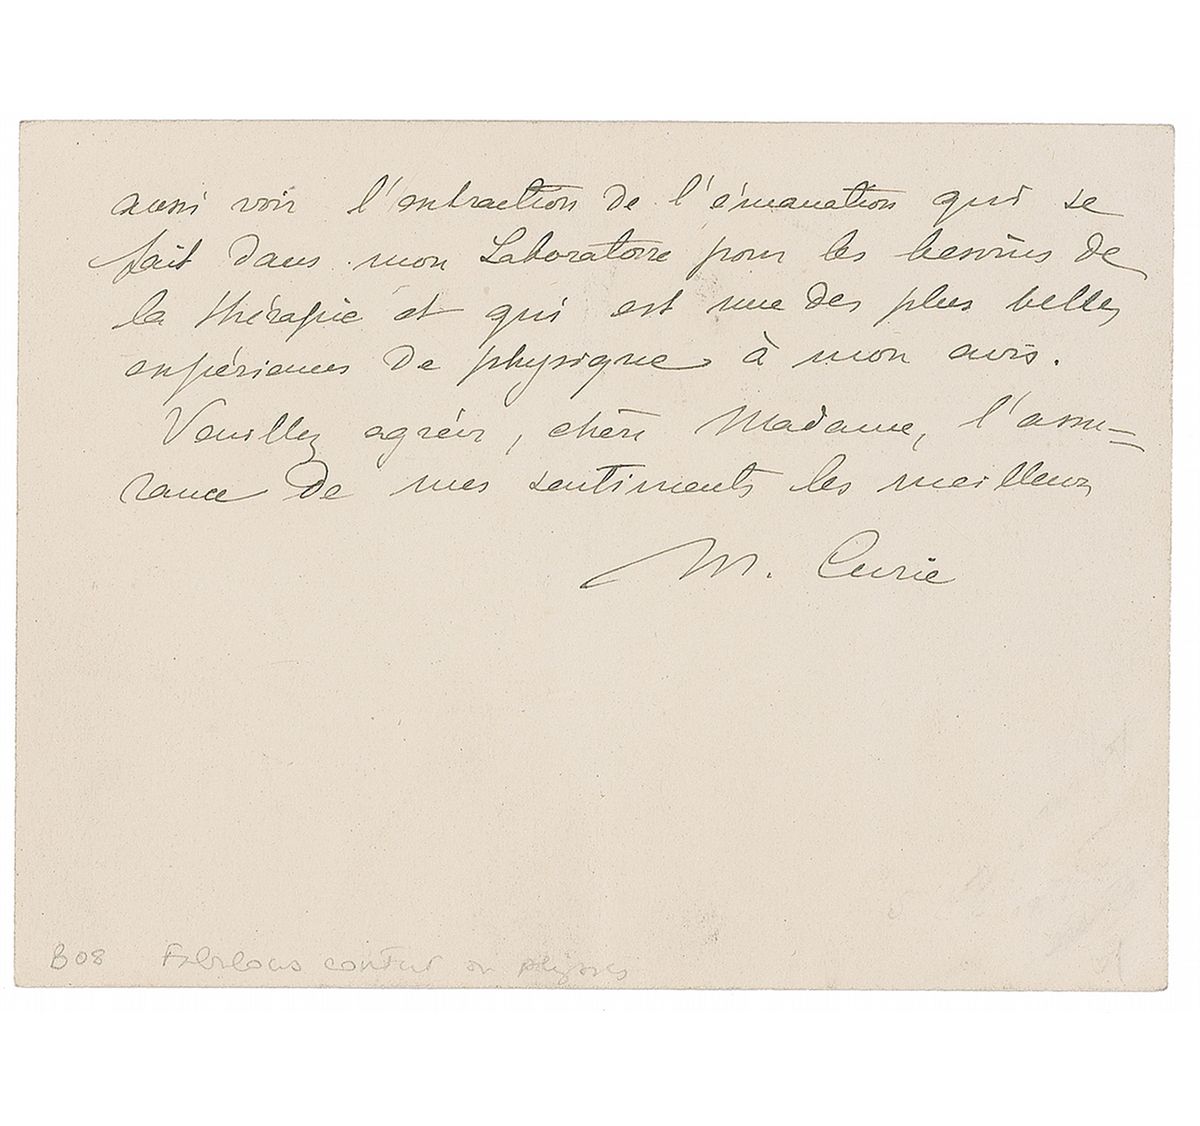 aussi voir l'extraction de l'émanation qui se
fait dans mon Laboratoire pour les besoins de
la thérapie et qui est une des plus belles
expériences de physique à mon avis.
Veuillez agréer, chère Madame, l'assu=
rance de mes sentiments les meilleurs
M. Curie
B08 Fabulous content on physics